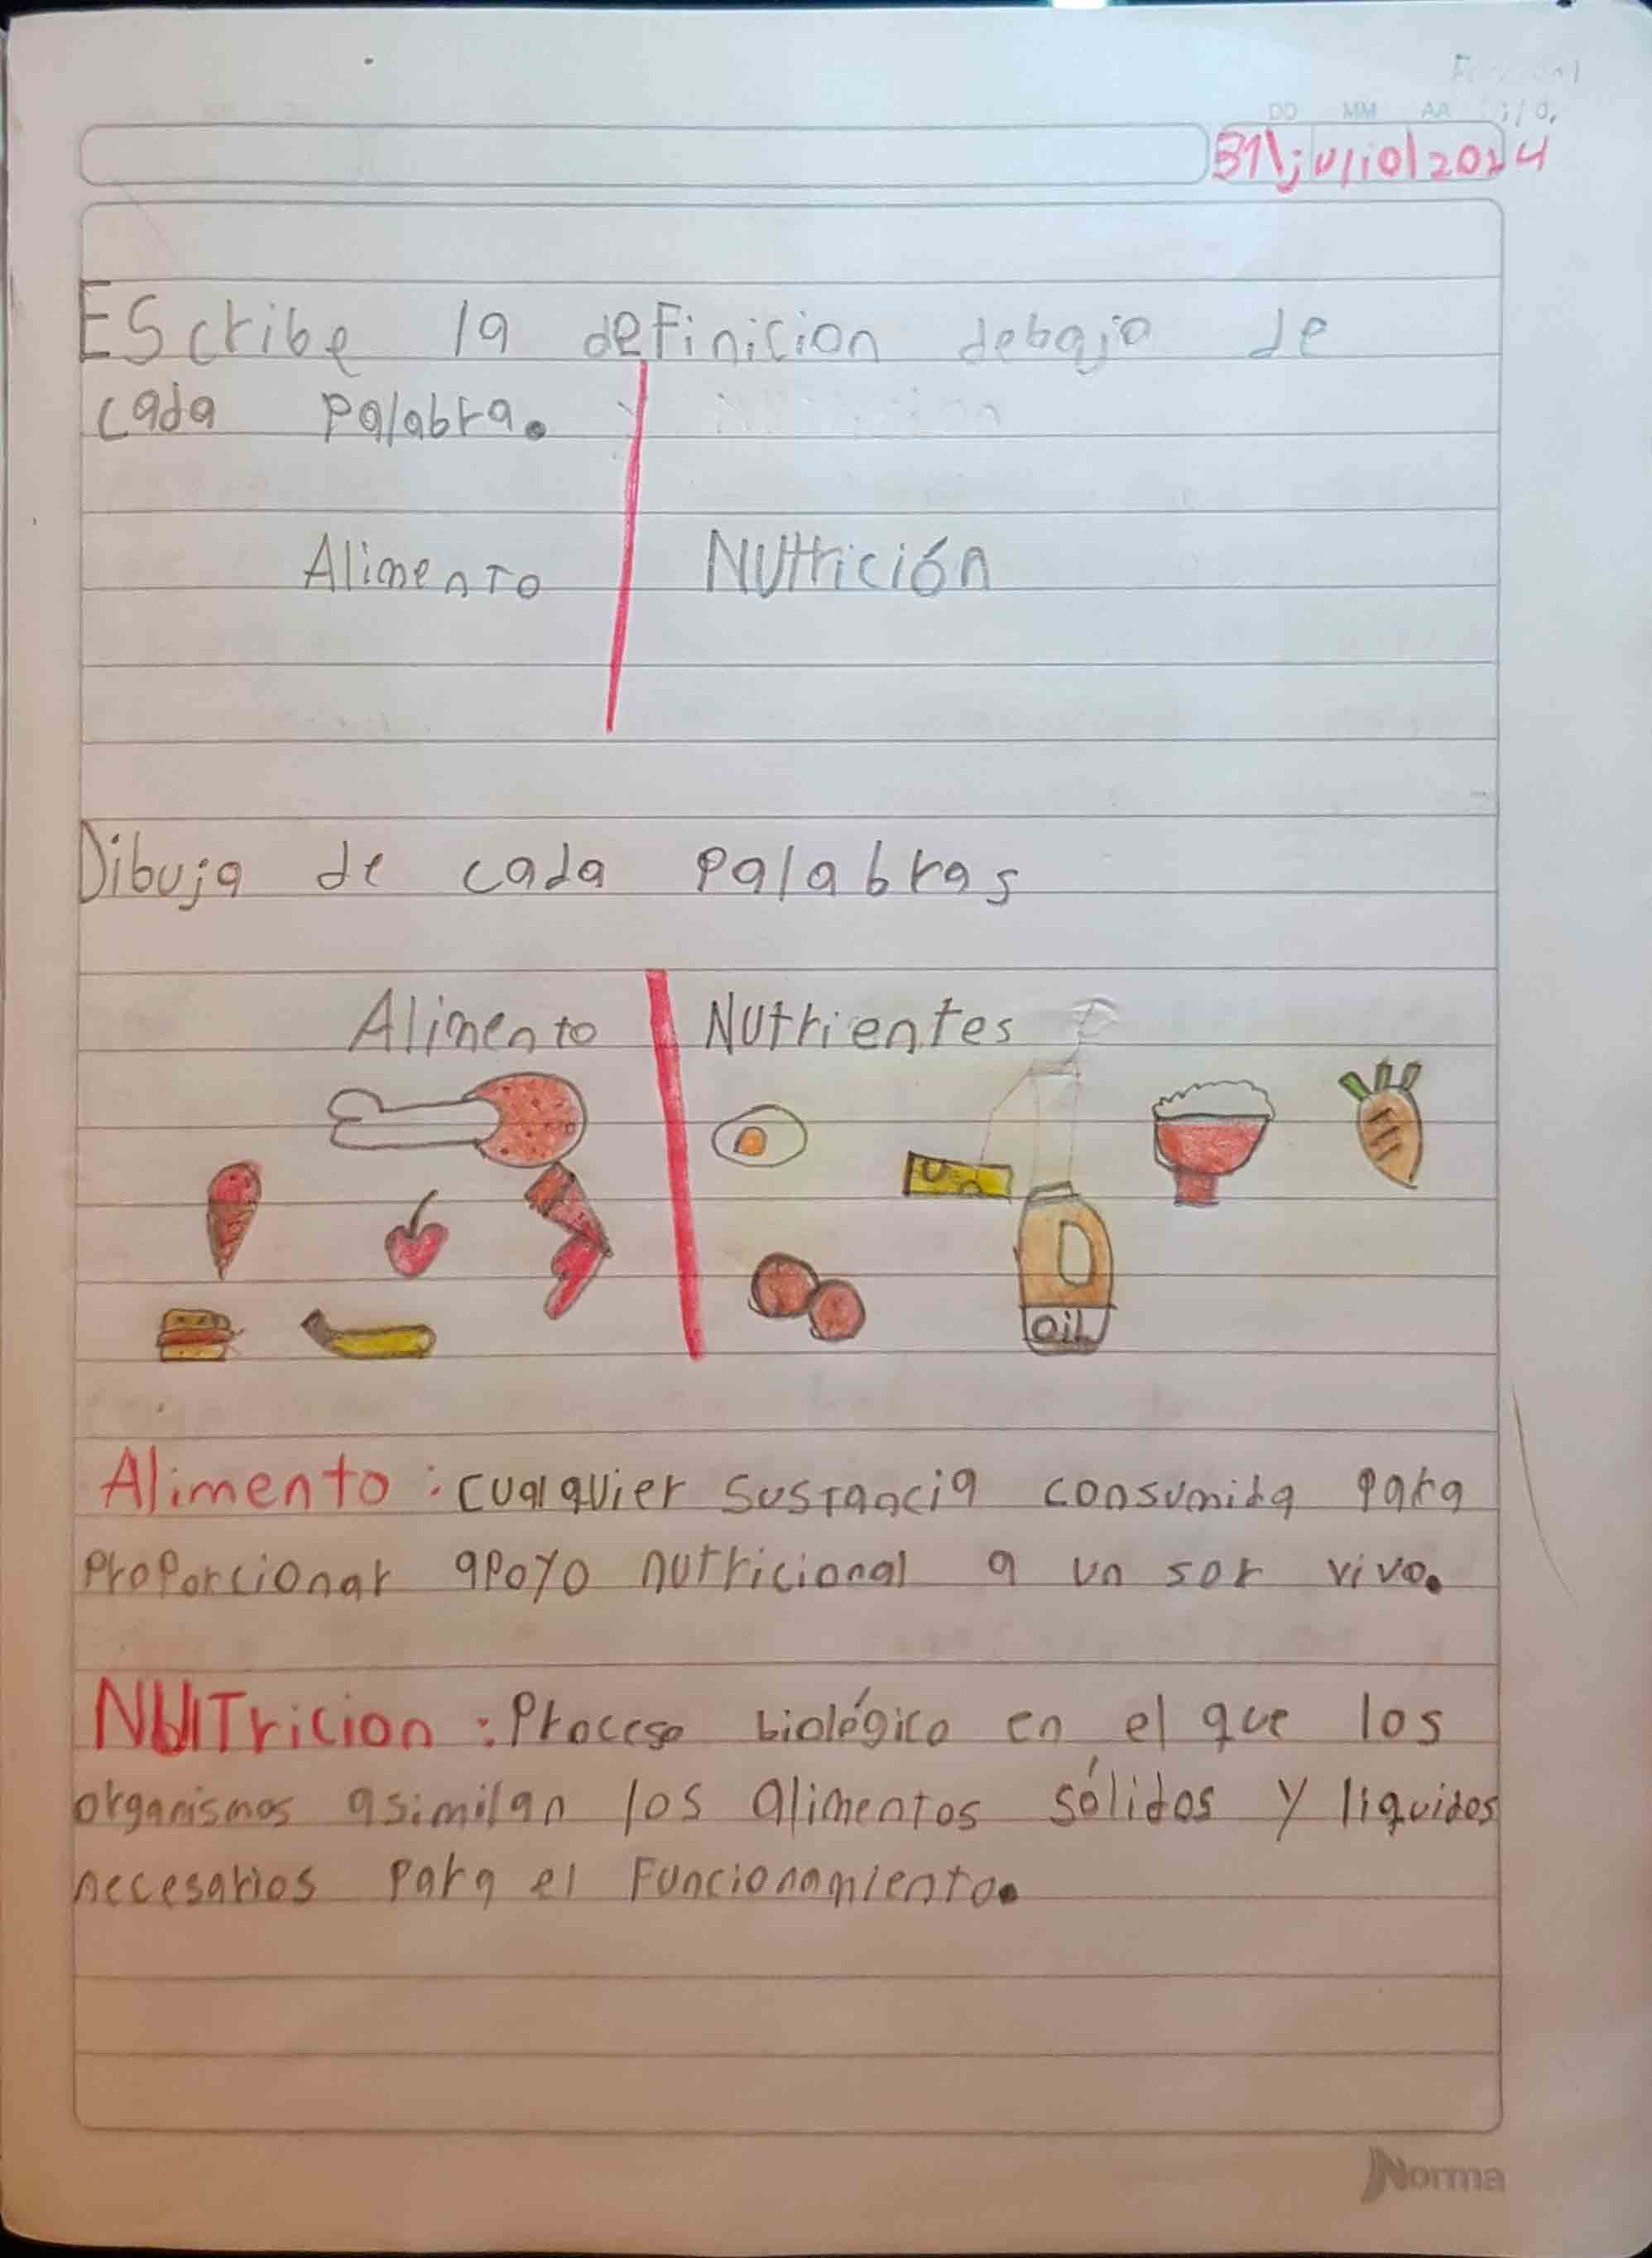 DD MM AA
31\julio|2024
EScribe la definicion debajo de
cada palabra.
Alimento Nuttrición
Dibuja de cada palabras
Alimento Nutrientes
OiL
Alimento : cualquier sustancia consumida para
proporcionar apoyo nutricional a un sor vivo.
NUTricion : Proceso biológico en el que los
organismos asimilan los alimentos sólidos y liquidos
necesarios para el Funcionamiento.
Norma